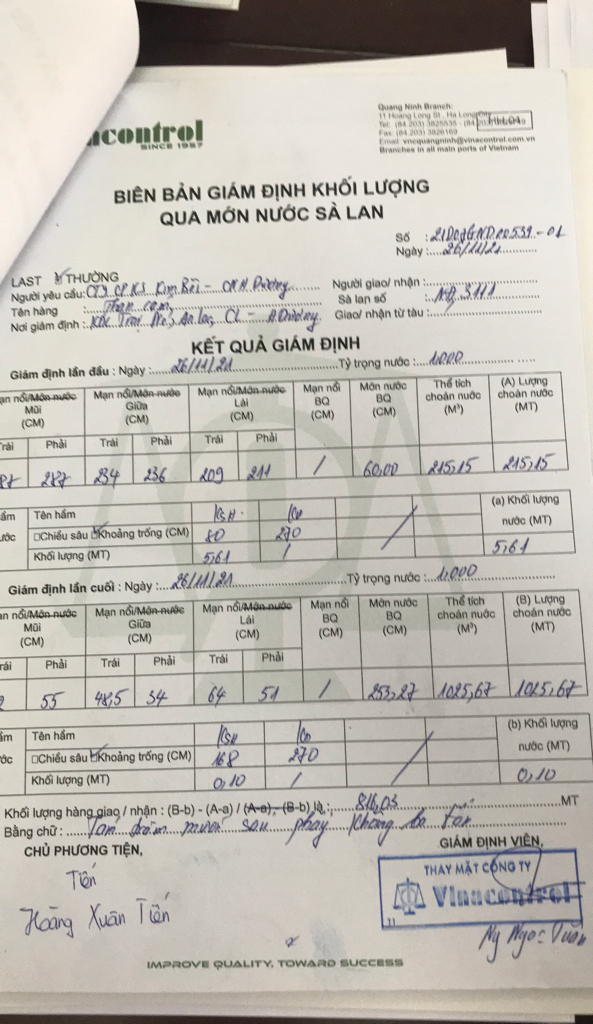 acontrol
SINCE 1957
Quang Ninh Branch:
11 Hoang Long St., Ha Long City
Tel: (84.203) 3825535 - (84.20
Fax: (84.203) 3826169
Email: vncquangninh@vinacontrol.com.vn
Branches in all main ports of Vietnam
BIÊN BẢN GIÁM ĐỊNH KHỐI LƯỢNG
QUA MỚN NƯỚC SÀ LAN
Số :
Ngày : 26/11/21
LAST THƯỜNG
Người yêu cầu: CP KS Kim Bôi - CN H. Dương
Người giao/ nhận :
Tên hàng Than cám
Sà lan số 3111
Nơi giám định : An lạc, CL - H Dương
Giao/ nhận từ tàu :
KẾT QUẢ GIÁM ĐỊNH
Giám định lần đầu : Ngày : 26/11/21 Tỷ trọng nước : 1,000
ạn nổi/Món nước Mũi (CM) Mạn nổi/Món nước Giữa (CM) Mạn nổi/Món nước Lái (CM) Mạn nổi BQ (CM) Món nước BQ (CM) Thể tích choán nước (M³) (A) Lượng choán nước (MT)
Trái Phải Trái Phải Trái Phải
87 287 234 236 209 211 / 60,00 215,15 215,15
ầm Tên hầm KSH (a) Khối lượng nước (MT)
ước □Chiều sâu Khoảng trống (CM) 80 270
Khối lượng (MT) 5,61 / 5,61
Giám định lần cuối : Ngày : 26/11/21 Tỷ trọng nước : 1,000
ạn nổi/Món nước Mũi (CM) Mạn nổi/Món nước Giữa (CM) Mạn nổi/Món nước Lái (CM) Mạn nổi BQ (CM) Món nước BQ (CM) Thể tích choán nước (M³) (B) Lượng choán nước (MT)
rái Phải Trái Phải Trái Phải
2 55 48,5 34 64 51 / 253,27 1025,67 1025,67
ầm Tên hầm KSH (b) Khối lượng nước (MT)
ớc □Chiều sâu Khoảng trống (CM) 168 270
Khối lượng (MT) 0,10 / 0,10
Khối lượng hàng giao / nhận : (B-b) - (A-a) / (A-a) - (B-b) là : 816,03 MT
Bằng chữ : Tám trăm mười sáu phẩy không ba tấn
CHỦ PHƯƠNG TIỆN, GIÁM ĐỊNH VIÊN,
THAY MẶT CÔNG TY
Vinacontrol
11
Tiến
Hoàng Xuân Tiến
Ngọc Tuấn
IMPROVE QUALITY, TOWARD SUCCESS